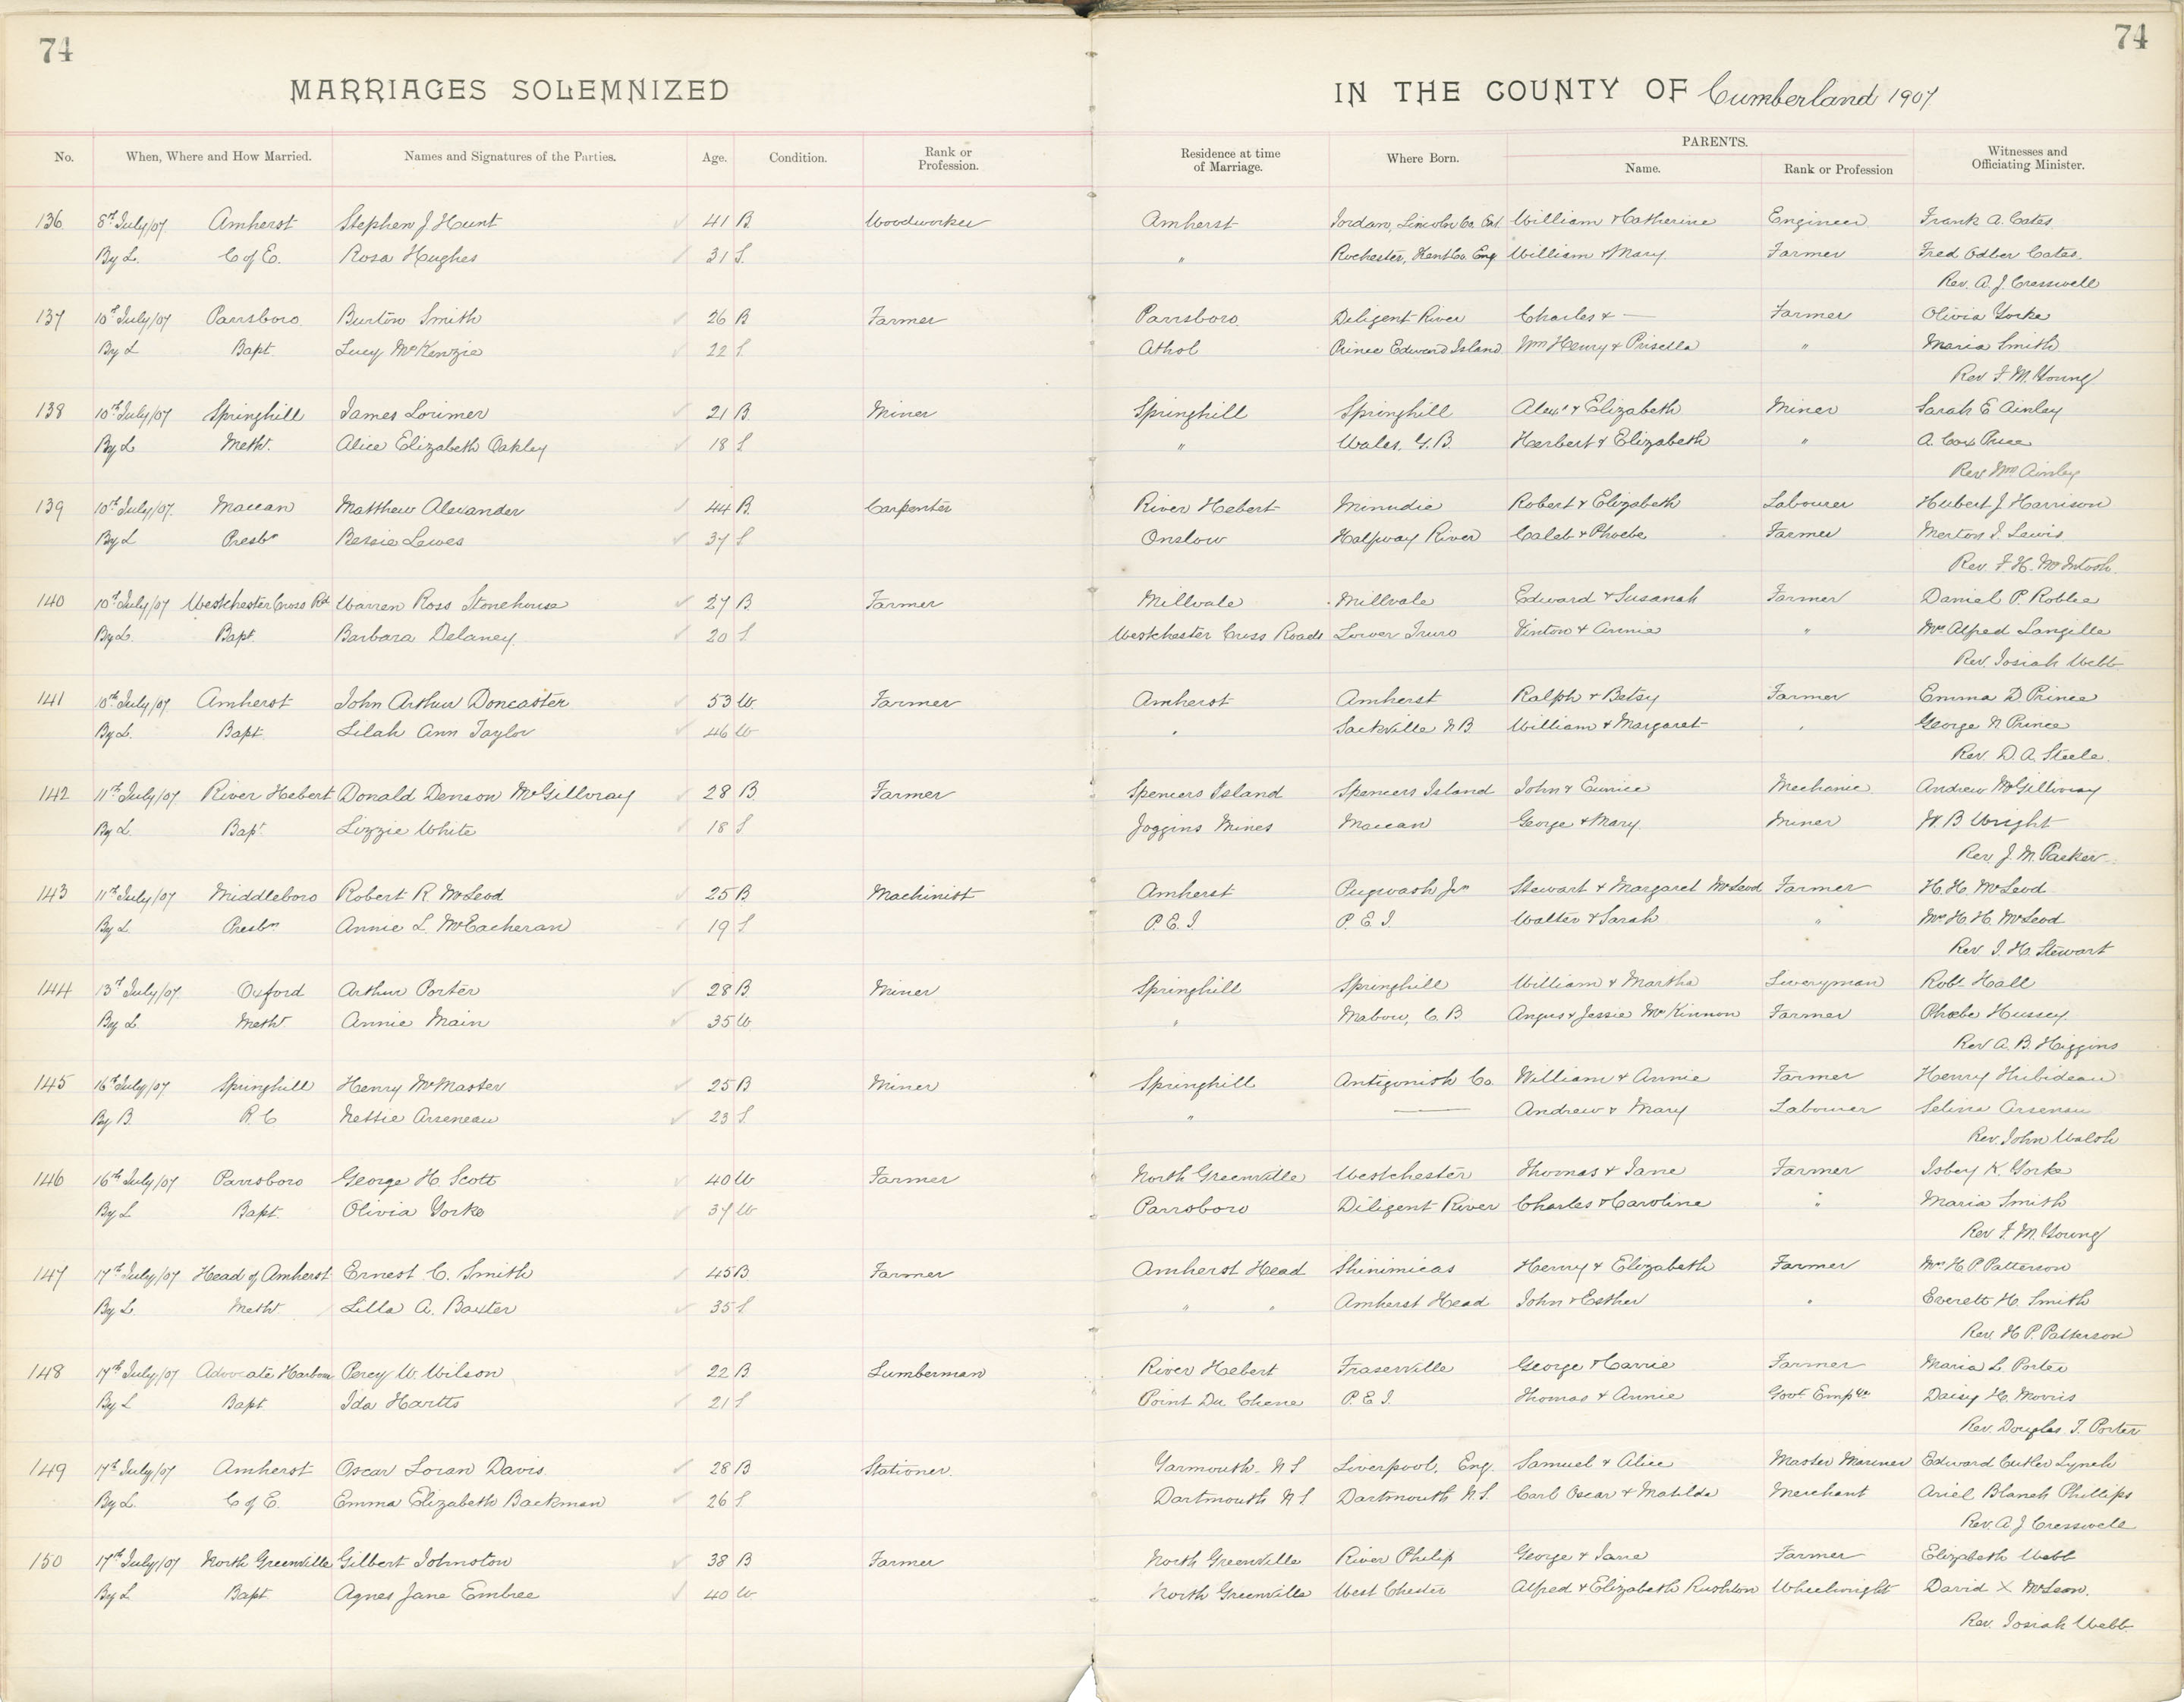 74
74
MARRIAGES SOLEMNIZED IN THE COUNTY OF Cumberland 1907
No. When, Where and How Married. Names and Signatures of the Parties. Age. Condition. Rank or Profession. Residence at time of Marriage. Where Born. PARENTS. Name. Rank or Profession Witnesses and Officiating Minister.
136 8th July/07 Amherst Stephen J Hunt 41 B. Woodworker Amherst Jordan, Lincoln Co. Ont William & Catherine Engineer Frank A. Cates
By L. C of E. Rosa Hughes 31 S. " Rochester, Kent Co. Eng. William & Mary Farmer Fred Odber Cates.
Rev. A. J. Cresswell
137 10th July/07 Parrsboro Burton Smith 26 B Farmer Parrsboro Diligent River Charles & — Farmer Olivia Yorke
By L Bapt. Lucy McKenzie 22 S. Athol Prince Edward Island Wm Henry & Prisella " Maria Smith
Rev F. M. Young
138 10th July/07 Springhill James Lorimer 21 B. Miner Springhill Springhill Alexr & Elizabeth Miner Sarah E Ainley
By L Meth. Alice Elizabeth Oakley 18 S " Wales, G.B. Herbert & Elizabeth " A. Cox Price
Rev Wm Ainley
139 10th July/07. Maccan Matthew Alexander 44 B. Carpenter River Hebert Minudie Robert & Elizabeth Labourer Hubert J Harrison
By L Presbn Bessie Lewes 37 S Onslow Halfway River Caleb & Phoebe Farmer Merton I. Lewis.
Rev. F. H. McIntosh.
140 10th July/07 Westchester Cross Rd Warren Ross Stonehouse 27 B. Farmer Millvale Millvale Edward & Susanah Farmer Daniel P. Roblee
By L. Bapt. Barbara Delaney. 20 S. Westchester Cross Roads Lower Truro Vinton & Annie " Mrs Alfred Langille
Rev. Josiah Webb
141 10th July/07 Amherst John Arthur Doncaster 53 W. Farmer Amherst Amherst Ralph & Betsy Farmer Emma D Prince
By L. Bapt Lilah Ann Taylor 46 W " Sackville N.B. William & Margaret " George N Prince
Rev. D. A. Steele.
142 11th July/07 River Hebert Donald Denson McGillvray 28 B Farmer Spencers Island Spencers Island John & Eunice Mechanic Andrew McGillivray
By L. Bapt Lizzie White 18 S Joggins Mines Maccan George & Mary. Miner W. B Wright
Rev. J. M. Parker.
143 11th July/07 Middleboro Robert R. McLeod 25 B Machinist Amherst Pugwash Jcn Stewart & Margaret McLeod Farmer H. H. McLeod
By L Presbn Annie L McEacheran 19 S P.E.I P.E.I. Walter & Sarah " Mrs H. H. McLeod
Rev. J. H. Stewart
144 13th July/07. Oxford Arthur Porter 28 B. Miner Springhill Springhill William & Martha Liveryman Robt Hall
By L. Meth. Annie Main 35 W. " Mabou, C.B Angus & Jessie McKinnon Farmer Phoebe Hussey.
Rev A. B. Higgins
145 16th July/07 Springhill Henry McMaster 25 B Miner Springhill Antigonish Co. William & Annie Farmer Henry Thibideau
By B. R.C Nettie Arseneau 23 S. " — Andrew & Mary Labourer Selina Arsenau
Rev. John Walsh
146 16th July/07 Parrsboro George H. Scott 40 W Farmer North Greenville Westchester Thomas & Jane Farmer Isbey K. Yorke
By L Bapt. Olivia Yorke 37 W Parrsboro Diligent River Charles & Caroline " Maria Smith
Rev F. M. Young
147 17th July/07 Head of Amherst Ernest C. Smith 45 B. Farmer Amherst Head Shinimicas Henry & Elizabeth Farmer Mrs H. P. Patterson
By L. Meth Lilla A. Baxter 35 S. " " Amherst Head John & Esther " Everett H. Smith
Rev. H. P. Patterson
148 17th July/07 Advocate Harbour Percy W. Wilson 22 B Lumberman River Hebert Fraserville George & Carrie Farmer Maria L. Porter
By L Bapt Ida Hartts 21 S Point Du Chene P.E.I. Thomas & Annie Govt Empye Daisy H. Morris
Rev. Douglas I. Porter
149 17th July/07 Amherst Oscar Loran Davis 28 B Stationer. Yarmouth. N S Liverpool, Eng. Samuel & Alice Master Mariner Edward Cutler Lynch
By L. C of E. Emma Elizabeth Backman 26 S. Dartmouth N S Dartmouth N.S. Carl Oscar & Matilda Merchant Ariel Blanch Phillips
Rev. A. J Cresswell
150 17th July/07 North Greenville Gilbert Johnston 38 B Farmer North Greenville River Philip George & Jane Farmer Elizabeth Webb
By L Bapt. Agnes Jane Embree 40 W North Greenville West Chester Alfred & Elizabeth Rushton Wheelwright David X McLean.
Rev. Josiah Webb